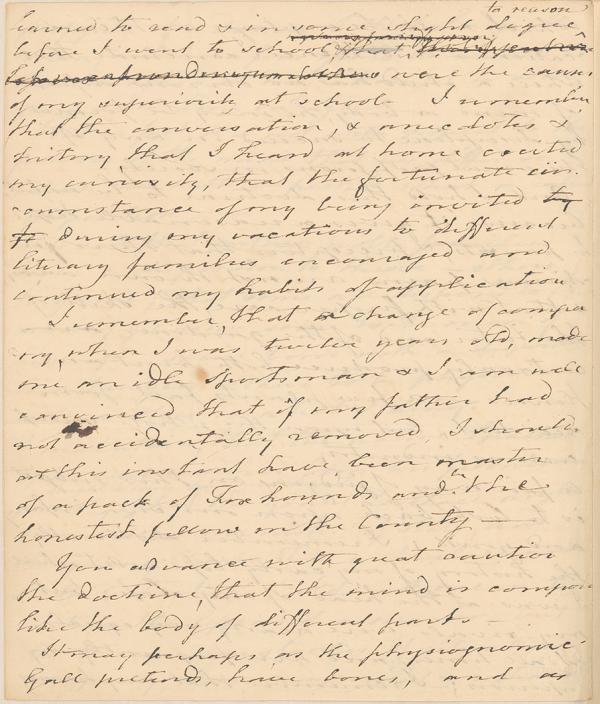 to reason
learned to read & in some slight degree
before I went to school, that
were the cause
of my superiority at school. I remember
that the conversation, & anecdotes &
history that I heard at home excited
my curiosity, that the fortunate cir-
cumstance of my being invited
during my vacations to different
literary families encouraged and
continued my habits of application
I remember, that a change of compa
ny, when I was twelve years old, made
me an idle Sportsman & I am well
convinced that if my father had
not accidentally removed, I should
at this instant have been master
of a pack of Fox hounds and "the
honestest fellow in the County —
You advance with great caution
the doctrine, that the mind is compou
like the body of different parts —
It may perhaps as the physiognomic
Gall pretends, have bones, and as